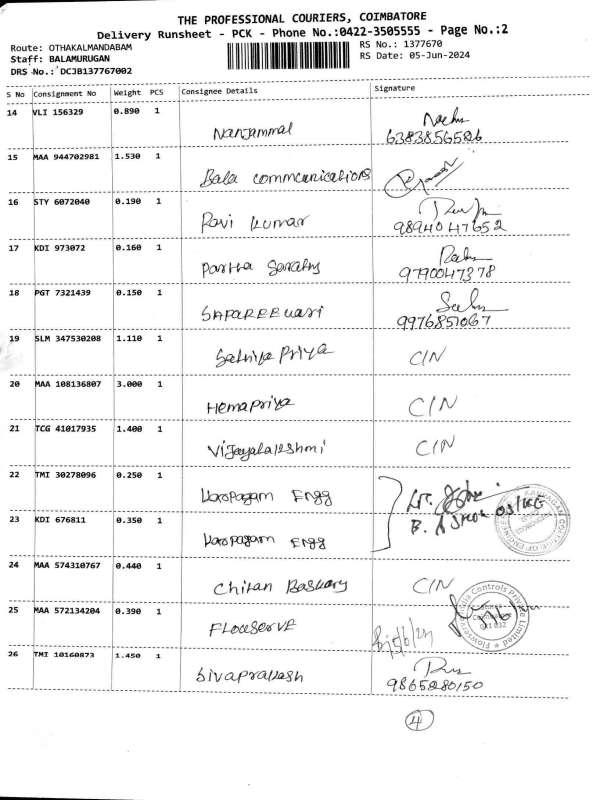 THE PROFESSIONAL COURIERS, COIMBATORE
Delivery Runsheet - PCK - Phone No.:0422-3505555 - Page No.:2
Route: OTHAKALMANDABAM RS No.: 1377670
Staff: BALAMURUGAN RS Date: 05-Jun-2024
DRS No.: DCJB137767002
S No Consignment No Weight PCS Consignee Details Signature
14 VLI 156329 0.890 1
Nanjammal 6383856526
15 MAA 944702981 1.530 1
Bala communications
16 STY 6072040 0.190 1
Ravi Kumar 9894047652
17 KDI 973072 0.160 1
Partha Sarathy 9790047378
18 PGT 7321439 0.150 1
9976851067
19 SLM 347530208 1.110 1
Sathiya Priya C/N
20 MAA 108136807 3.000 1
Hemapriya C/N
21 TCG 41017935 1.400 1
Vijayalakshmi C/N
22 TMI 30278096 0.250 1
Karpagam Engg
23 KDI 676811 0.350 1
Karpagam Engg
24 MAA 574310767 0.440 1
Chitan Baskary C/N
25 MAA 572134204 0.390 1
Flowserve 5/6/24
26 TMI 10160873 1.450 1
Sivaprakash 9865280150
4